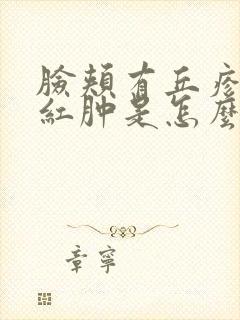 臉頰有丘疹
紅肿是怎麼
章寧